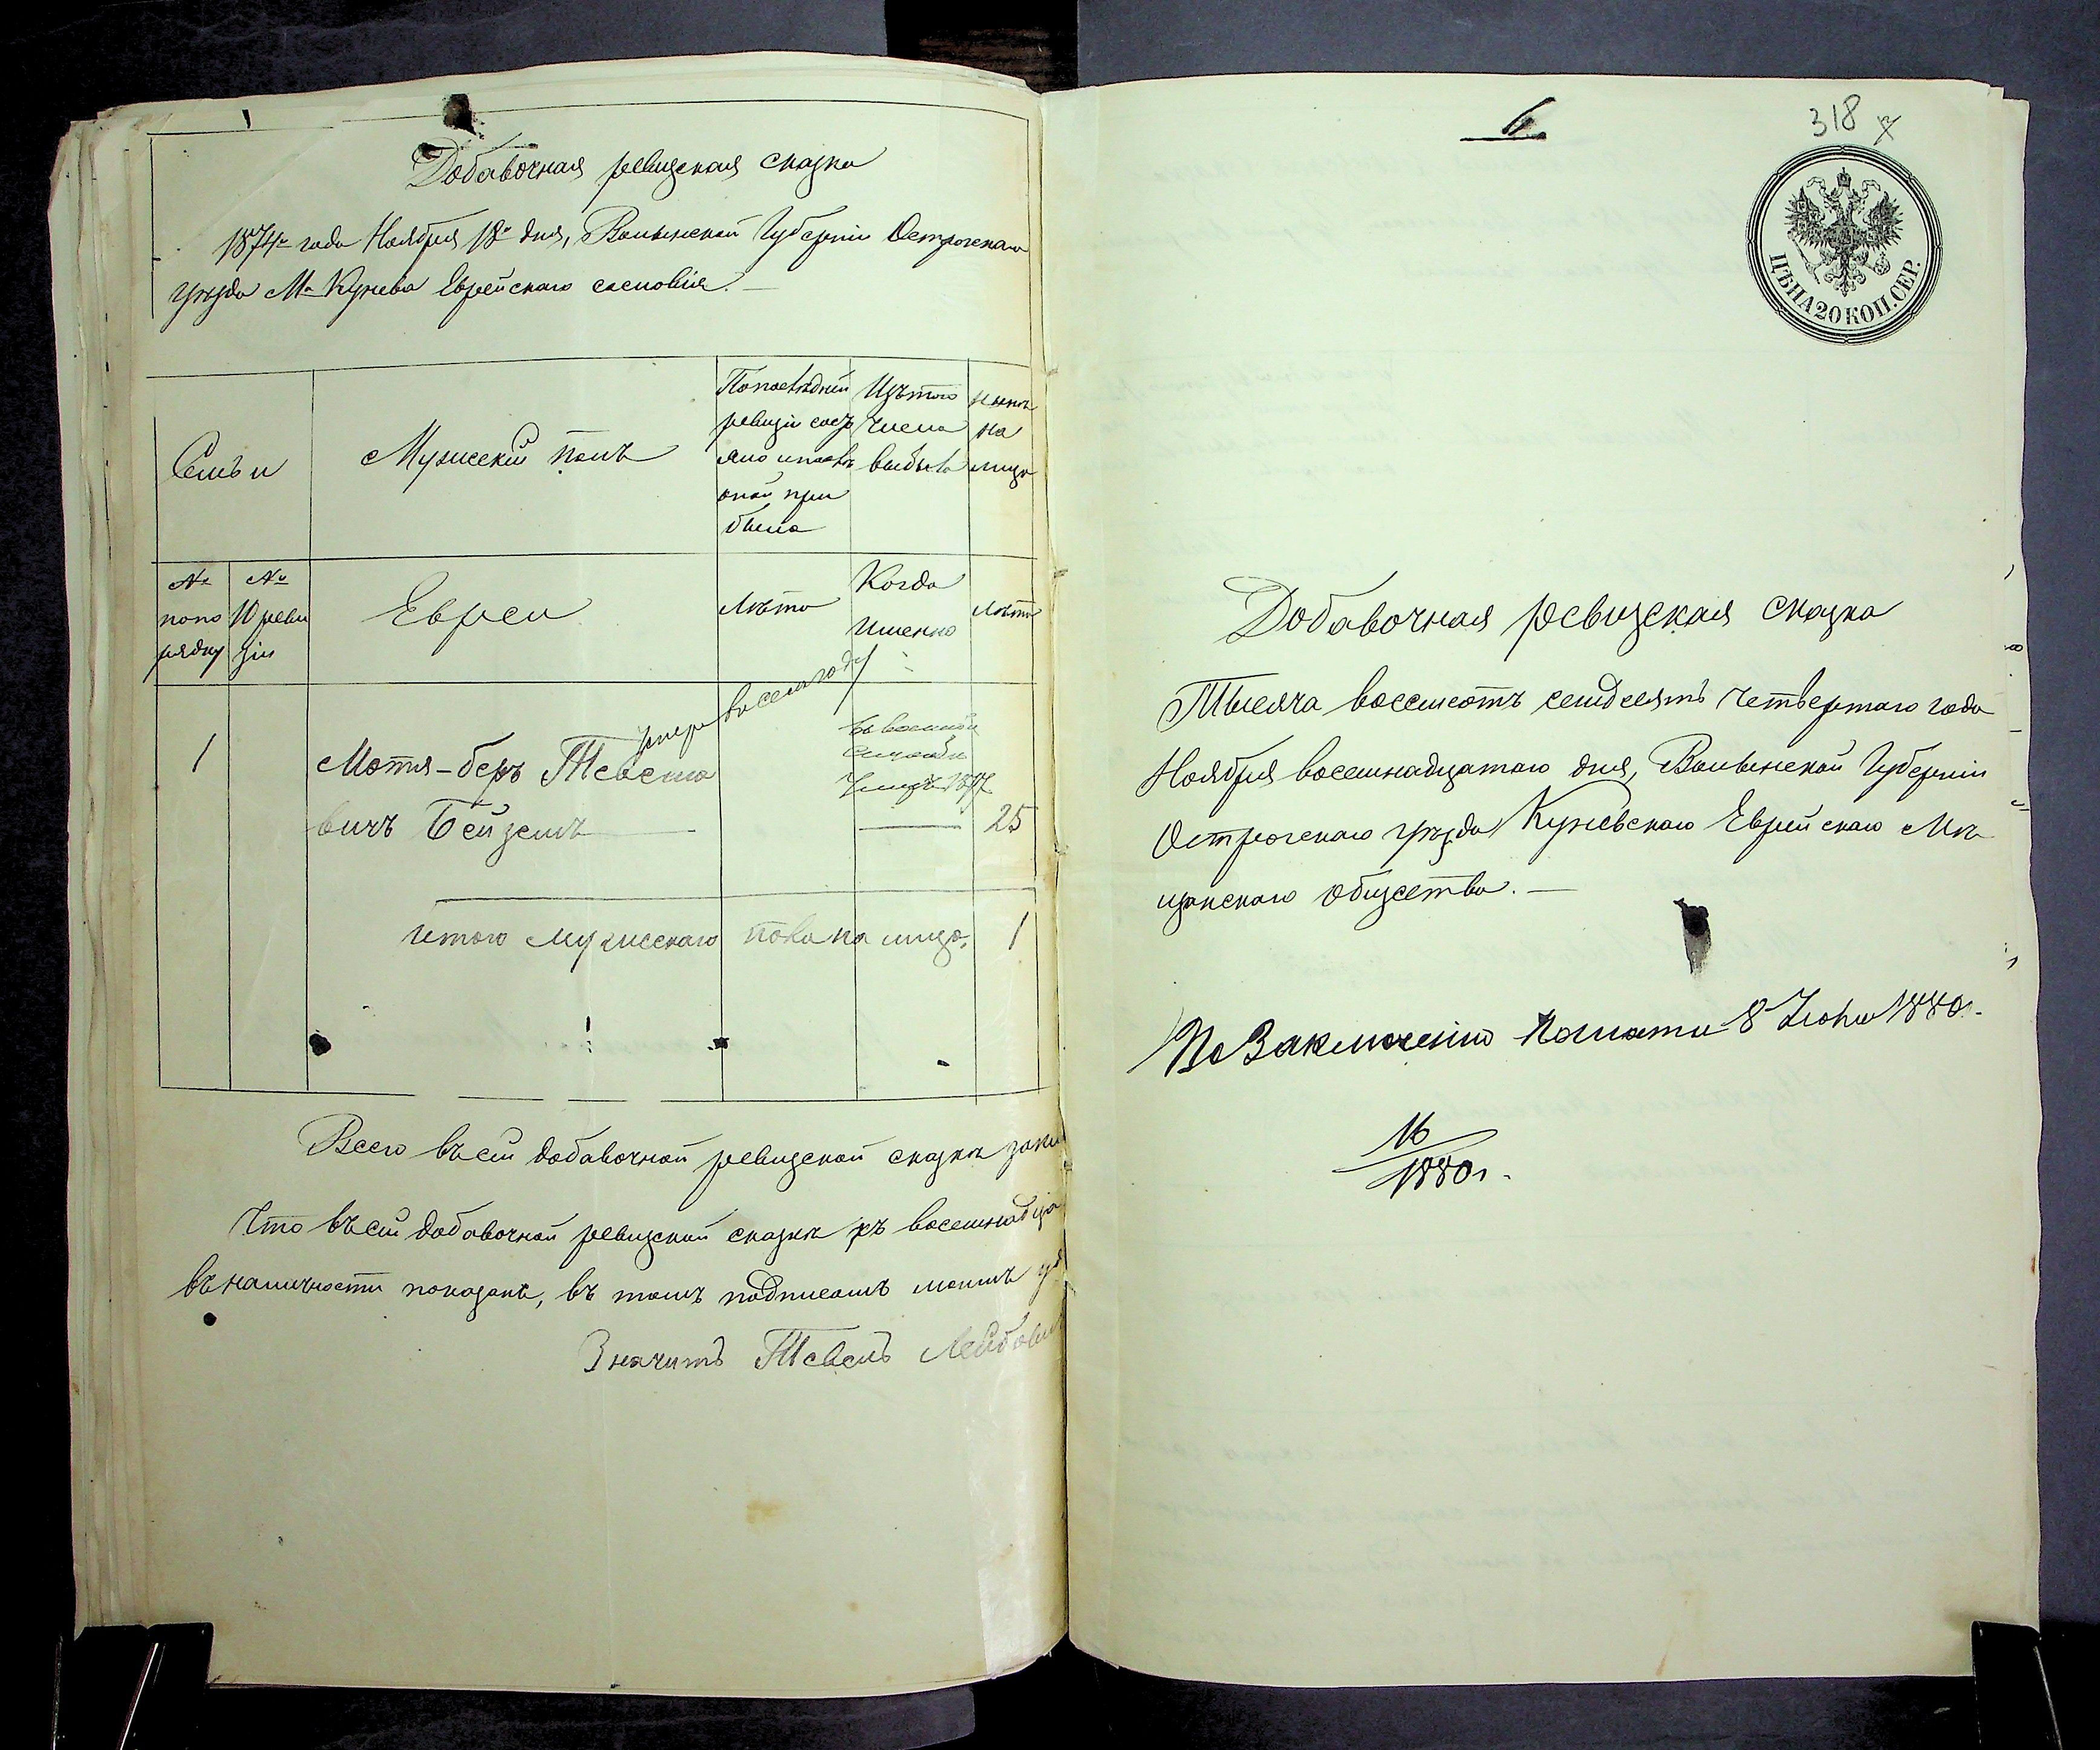 Добавочная ревизская сказка
1874го года Ноября 18го дня, Волынской Губерніи Острогскаго
уѣзда М. Кунева Еврейскаго сословія.—
Семьи
Мужескій полъ
По послѣдней
ревизіи сос
яло и послѣ
оной при
было
Изъ того
числа
выбыло
нынѣ
на
лицо
№
по по
рядку
№
10 реви
зіи
Евреи
лѣта
Когда
Именно
лѣта
1
Мотя-беръ Тевеле
вичъ Бейземъ —
въ военной
службѣ
— 25
итого мужескаго пола на лицо. 1
Всего въ сей добавочной ревизской сказкѣ
Что въ сей добавочной ревизской сказкѣ
въ наличности показанъ, въ томъ подписомъ моимъ
Значитъ Тевель
6.
318
ЦѢНА 20 КОП. СЕР.
Добавочная ревизская сказка
Тысяча восемсотъ семдесятъ четвертаго года
Ноября восемнадцатаго дня, Волынской Губерніи
Острогскаго уѣзда Куневскаго Еврейскаго Мѣ
щанскаго общества.—
По Заключенію Палаты 8 Іюня 1880 г.
16
1880 г.